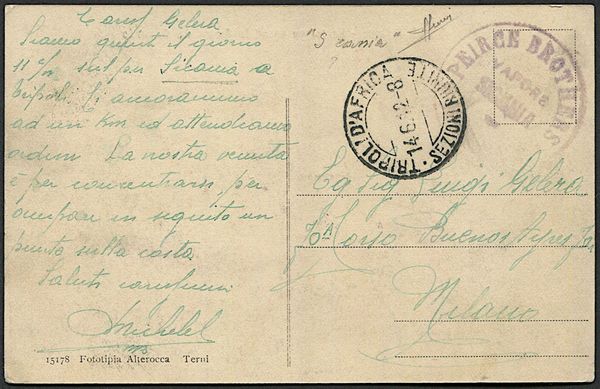 "Sicania"
Caro Gelera
Siamo giunti il giorno
11 sul per Sicania a
Tripoli. Ci ancorammo
ad un Km ed attendiamo
ordini. La nostra venuta
è per concentrarsi, per
occupare in seguito un
punto sulla costa
Saluti
Michele
15178 Fototipia Alterocca Terni
PEIRCE BROTHERS
VAPORE
SICANIA
TRIPOLI D'AFRICA
14.6.12-8
SEZIONI RIUNITE
Eg Sig Luigi Gelera
Corso Buenos Ayres
Milano